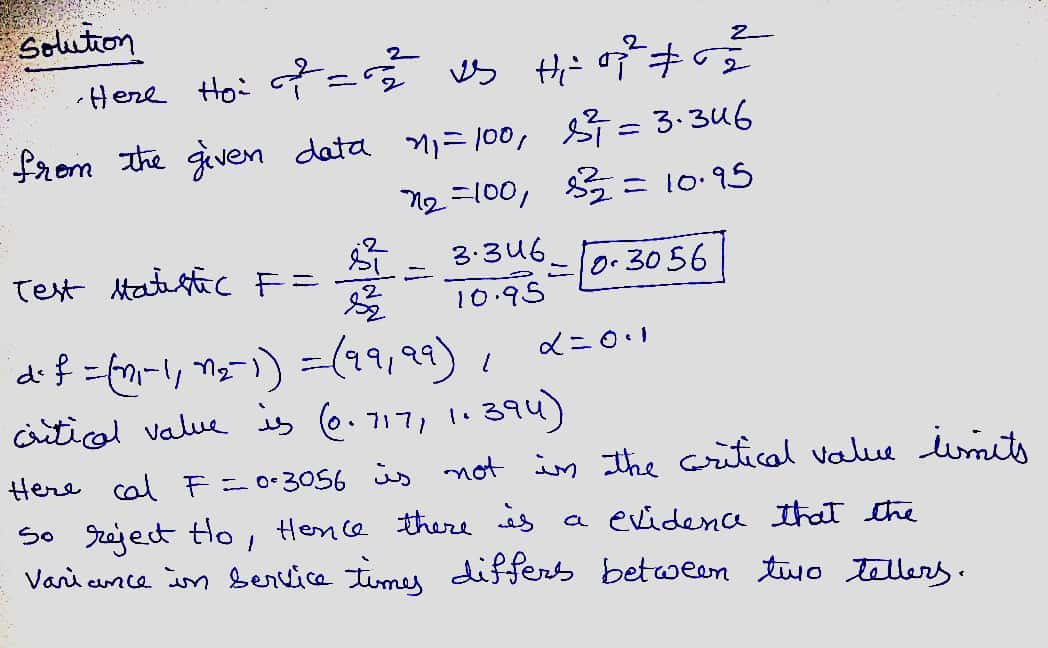 Solution
Here H₀: σ₁² = σ₂² vs H₁: σ₁² ≠ σ₂²
from the given data n₁ = 100, s₁² = 3.346
n₂ = 100, s₂² = 10.95
Test statistic F = s₁²/s₂² = 3.346/10.95 = 0.3056
d.f = (n₁-1, n₂-1) = (99, 99), α = 0.1
critical value is (0.717, 1.394)
Here cal F = 0.3056 is not in the critical value limits
So reject H₀, Hence there is a evidence that the
variance in service times differs between two tellers.